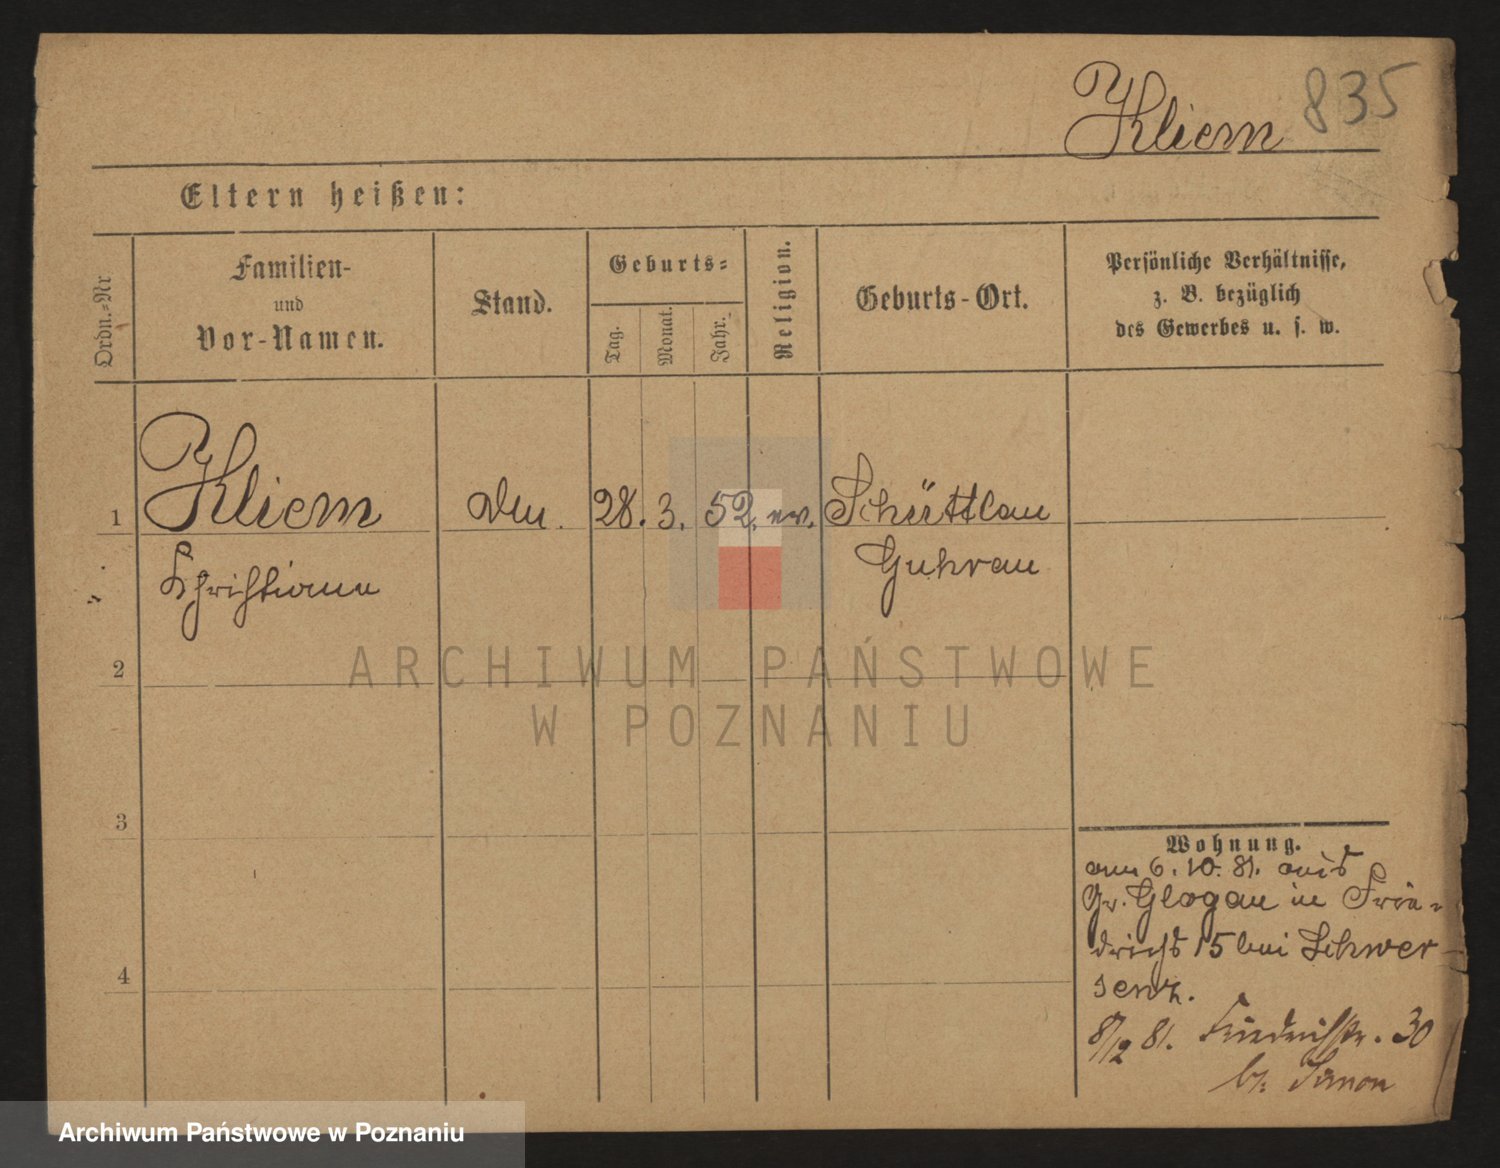 Kliem 835
Eltern heißen:
Ordn.-Nr
Familien-
und
Vor-Namen.
Stand.
Geburts-
Tag.
Monat.
Jahr.
Religion.
Geburts-Ort.
Persönliche Verhältnisse,
z. B. bezüglich
des Gewerbes u. s. w.
1 Kliem 28. 3. 52. ev. Schüttlau
Christiane Guhrau
2
ARCHIWUM PAŃSTWOWE
W POZNANIU
3
4
Wohnung.
am 6. 10. 81. aus
Gr. Glogau in Frie-
drichs 15 bei Schwer-
senz.
8/12 81. Friedrichstr. 30
b/.
Archiwum Państwowe w Poznaniu